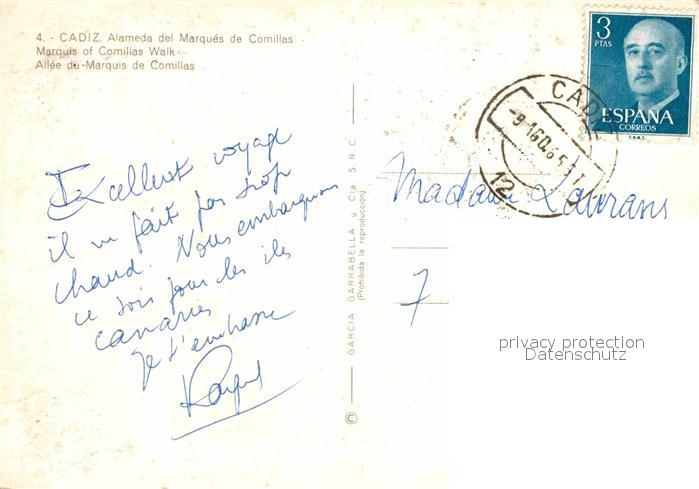 4. - CADIZ. Alameda del Marqués de Comillas
Marquis of Comillas Walk
Allée du Marquis de Comillas
Excellent voyage
il ne fait pas trop
chaud. Nous embarquons
ce soir pour les îles
canaries
Je t'embrasse
GARCIA GARRABELLA y Cía S. R. C.
(Prohibida la reproducción)
©
3
PTAS
ESPAÑA
CORREOS
F.N.M.T.
CADIZ
12
Madame
7
privacy protection
Datenschutz